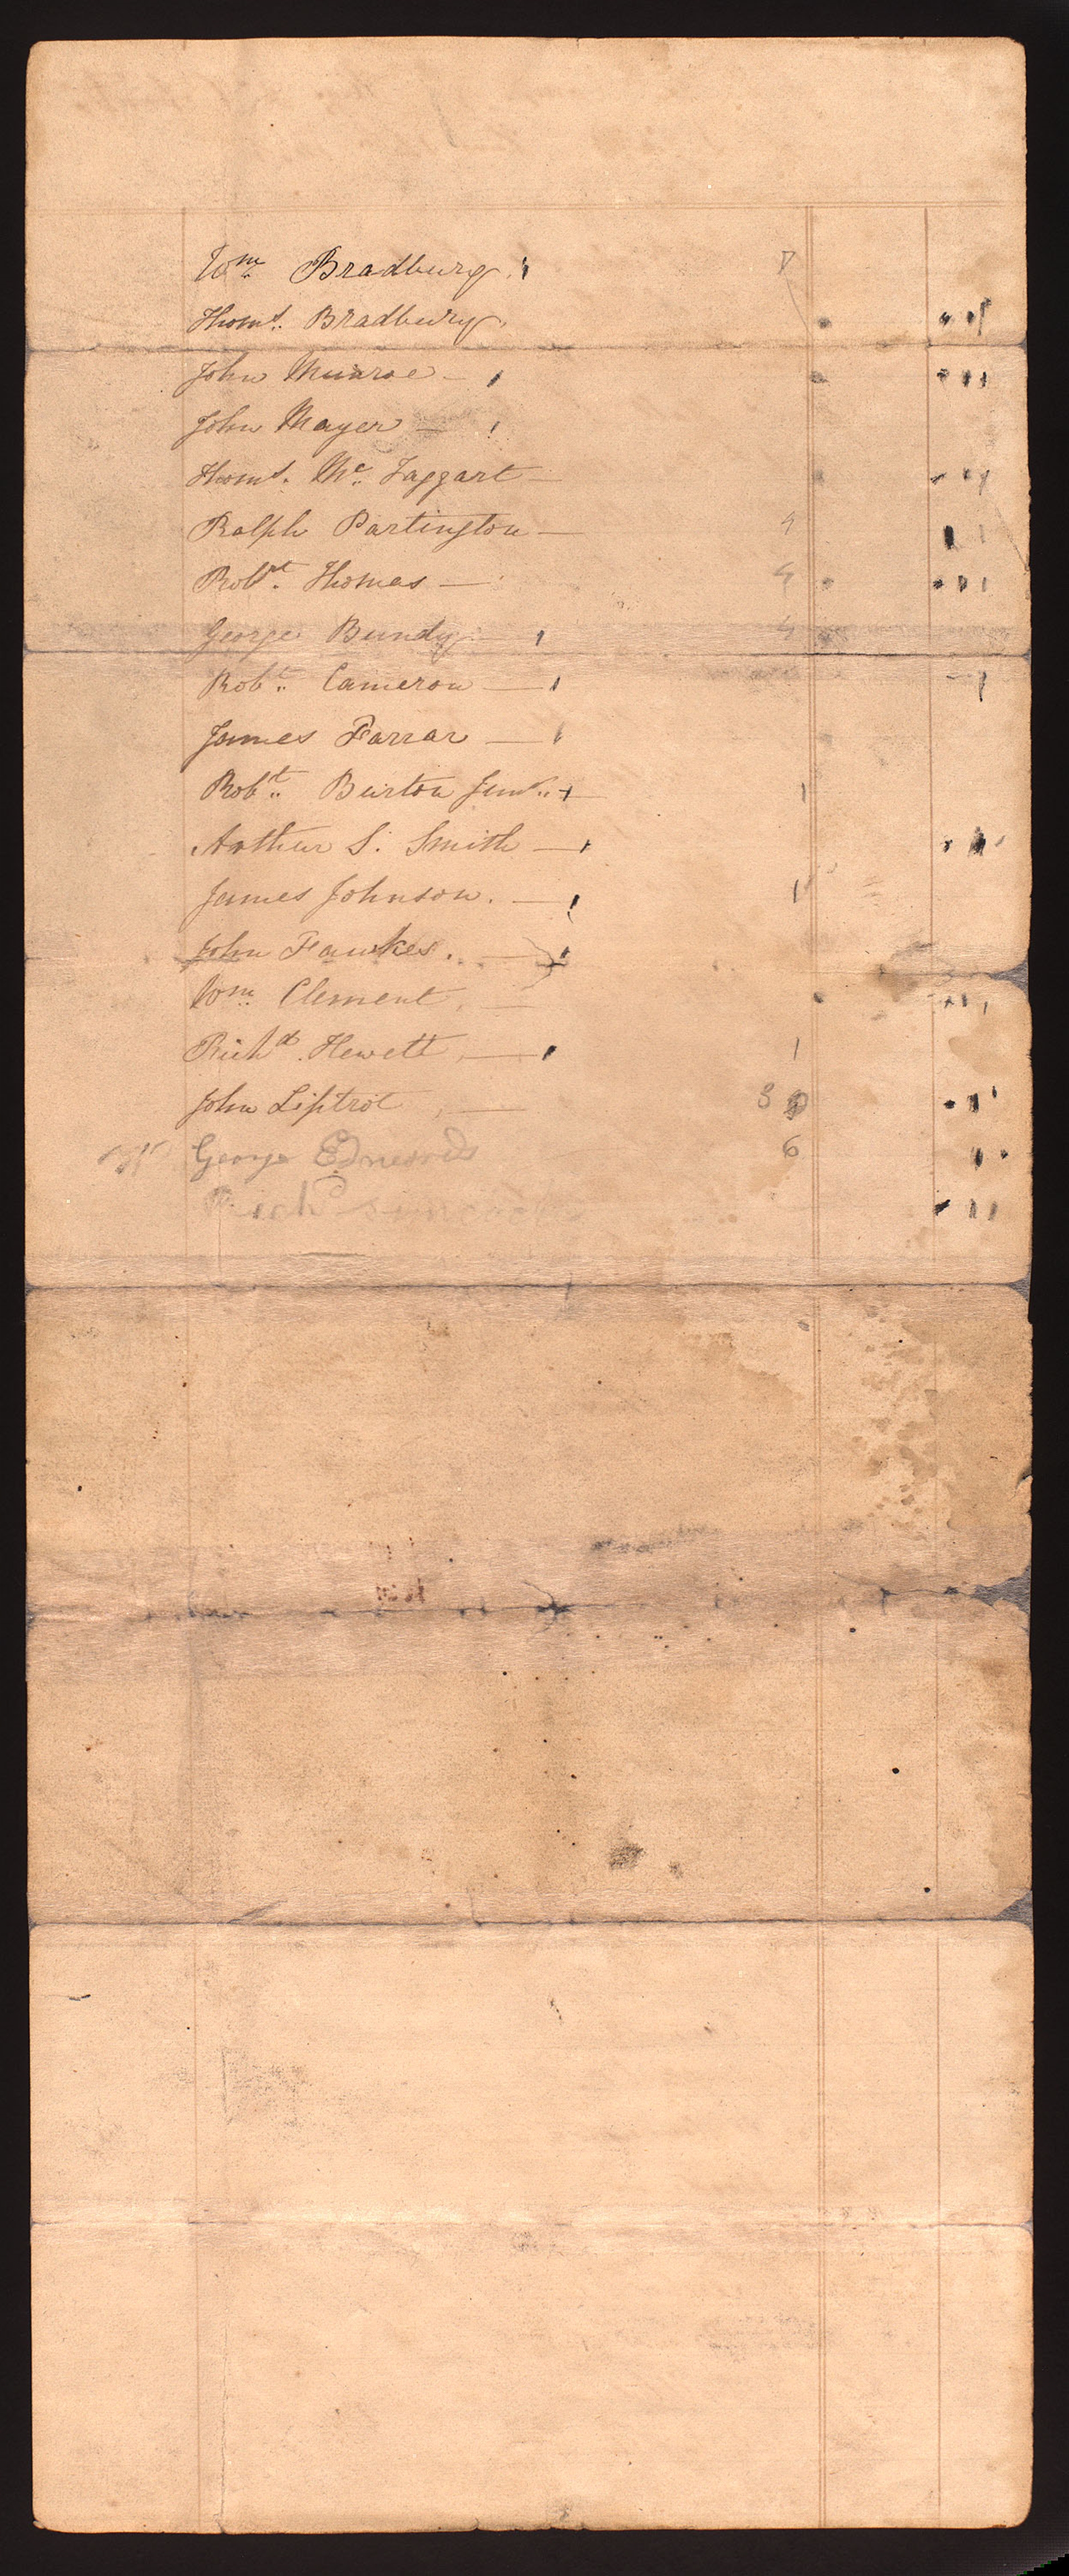 Wm. Bradbury.
Thoms. Bradbury.
John Munroe —
John Mayer —
Thoms. Mc. Taggart —
Ralph Partington — 4
Robt. Thomas — 4
George Bundy — 4
Robt. Cameron —
James Farrar —
Robt. Burton Junr. — 1
Arthur S. Smith —
James Johnson. — 1
John Fawkes. —
Wm. Clement, —
Richd. Hewett, — 1
John Liptrot, — 3
George Edwards 6
Rich